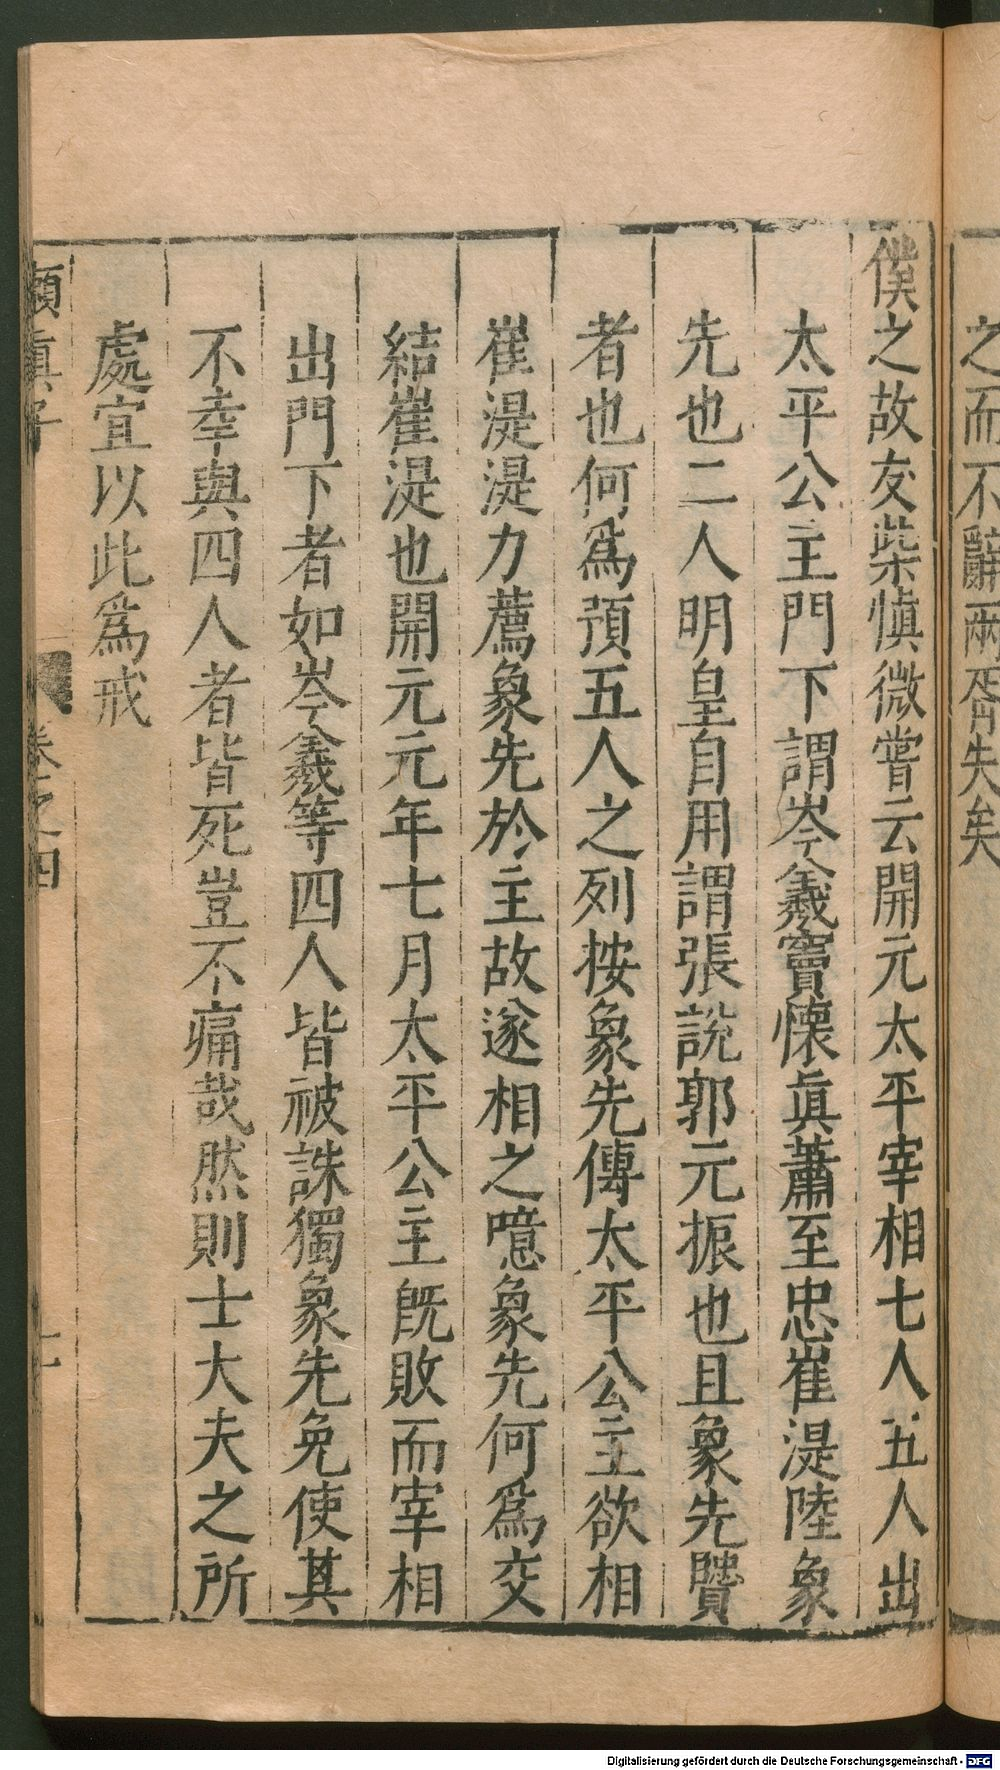 之而不辭兩胥失矣
僕之故友柴慎微嘗云開元太平宰相七人五人出
太平公主門下謂岑羲竇懷眞蕭至忠崔湜陸象
先也二人明皇自用謂張說郭元振也且象先賢
者也何爲預五人之列按象先傳太平公主欲相
崔湜湜力薦象先於主故遂相之噫象先何爲交
結崔湜也開元元年七月太平公主旣敗而宰相
出門下者如岑羲等四人皆被誅獨象先免使其
不幸與四人者皆死豈不痛哉然則士大夫之所
處宜以此爲戒
嬾眞子 卷之四 十一
Digitalisierung gefördert durch die Deutsche Forschungsgemeinschaft - DFG